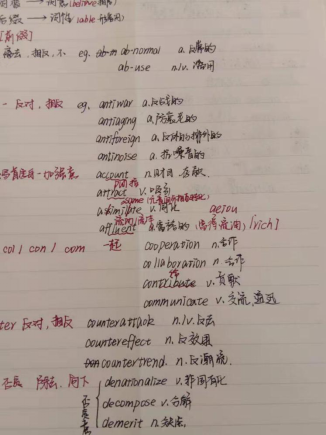 前缀 → 词意(believe相信)
后缀 → 词性(able 形容词)
[前缀]
离去、相反、不 eg. ab-n ab-normal a.反常的
ab-use n./v. 滥用
- 反对,相反 eg. antiwar a.反战的
antiaging a.防衰老的
antiforeign a.反对的,排外的
antinoise a.抗噪音的
account n.
attract v.吸引
assimilate v.同化 aeiou
affluent a.富裕的 [rich]
col / con / com 一起 cooperation n.合作
collaboration n.合作
contribute v.贡献
communicate v.交流,通迅
ter 反对,相反 counterattack n./v.反击
countereffect n.反效果
countertrend n.反潮流.
否定 向下 denationalize v.非国有化
decompose v.分解
demerit n.缺点.